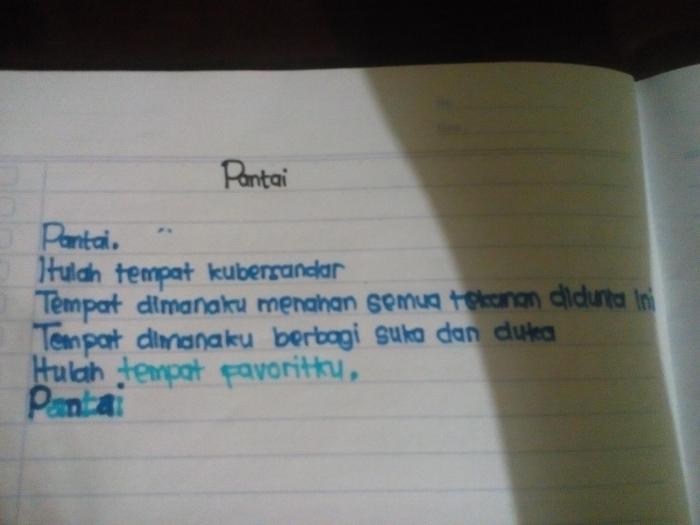 Pantai
Pantai.
Itulah tempat kubersandar
Tempat dimanaku menahan semua tekanan didunia ini
Tempat dimanaku berbagi suka dan duka
Itulah tempat favoritku.
Pantai